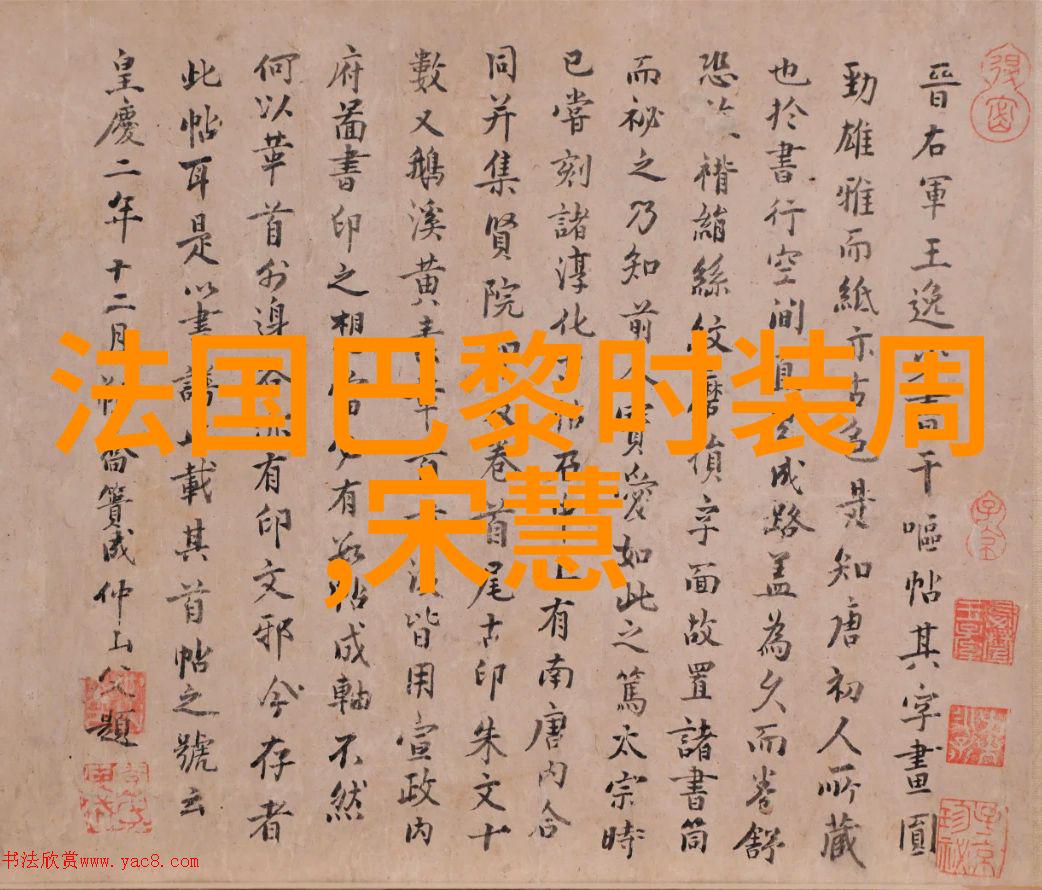 晉右軍王逸干嘔帖其字畫圓
勁雄雅而紙亦古色是知唐初人所藏
也於書行空間成路蓋為久而卷舒
恐褙絹絲紋磨損字面故置諸書筒
而祕之乃知前人寶愛如此之篤太宗時
已嘗刻諸淳化有南唐內合
同并集賢院卷首尾古印朱文十
數又鵝溪黃皆用宣政內
府啚書印之想當有數帖成軸不然
何以華首外邊有印文邪今存者
此帖耳是以書譜載其首帖之號云
皇慶二年十二月簣成仲山父題
法国巴黎时装周
,宋慧
书法欣赏www.yac8.com